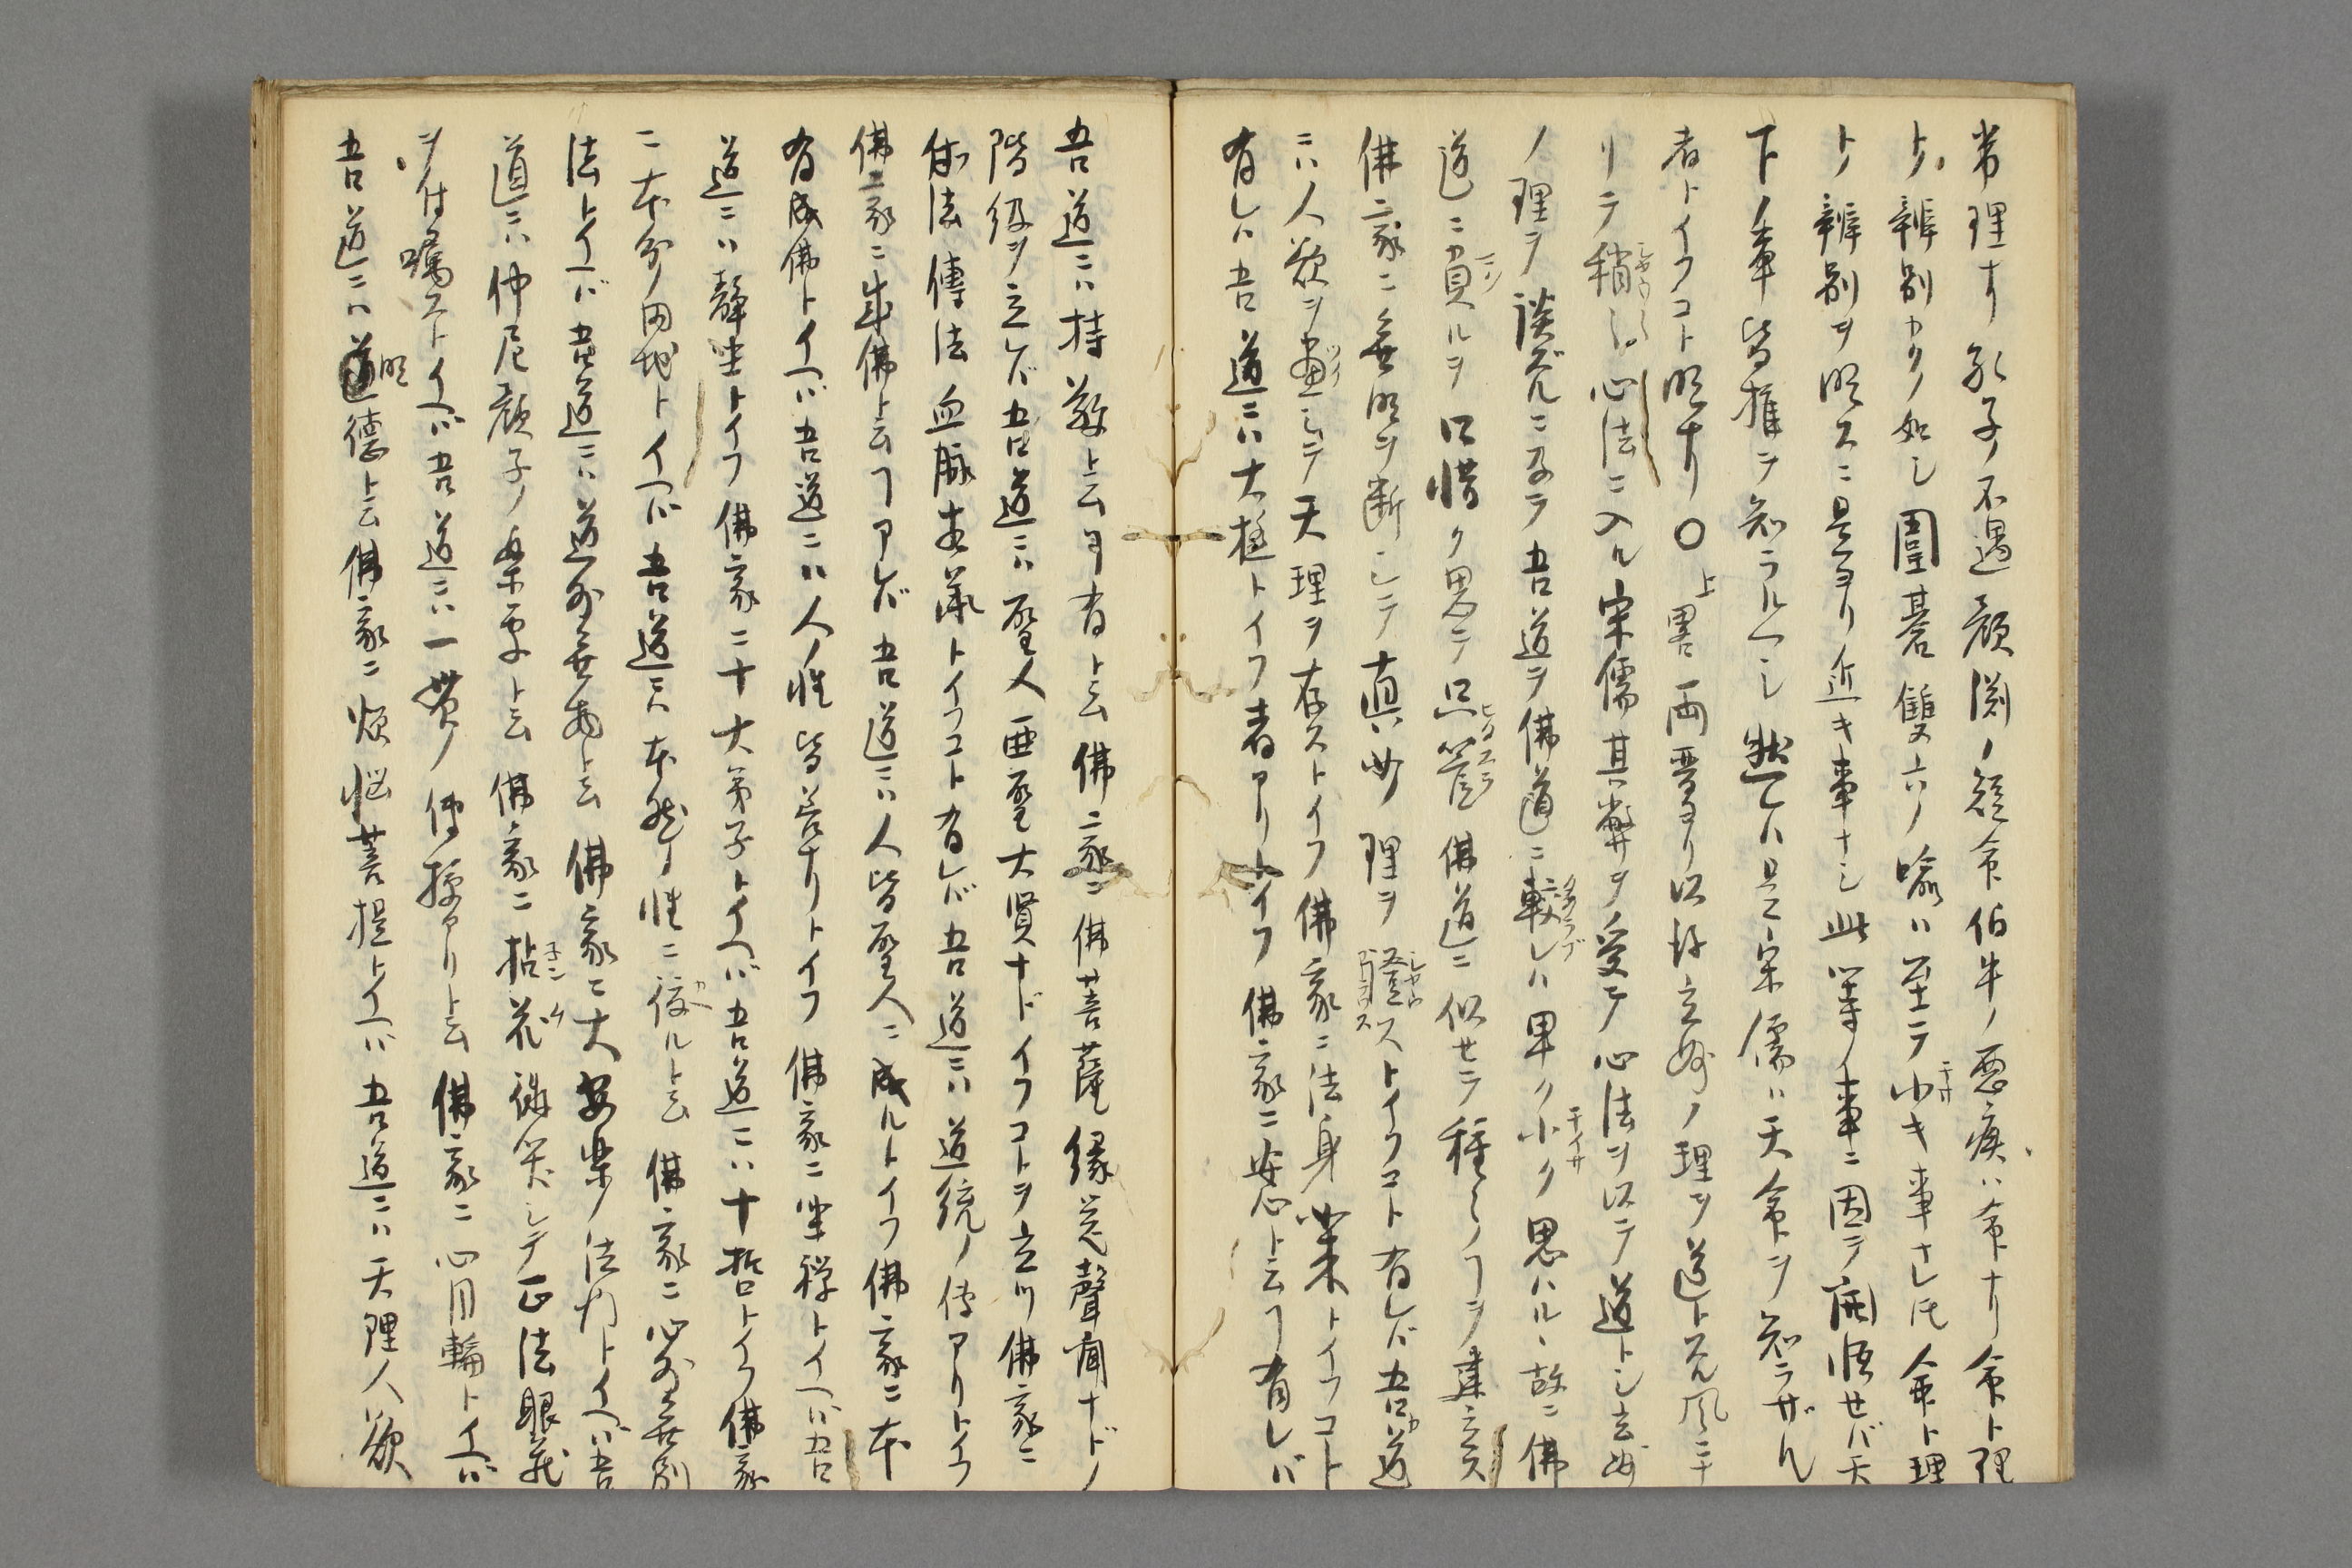 常理ナリ孔子ノ不遇顔渕ノ短命伯牛ノ悪疾ハ命ナリ命ト理
トノ辨別カクノ如シ圍碁雙六ノ喩ハ至テ小キ事ナレ𪜈命ト理
トノ辨別ヲ明スニ是ヨリ近キ事ナシ此等ノ事ニ因テ開悟セバ天
下ノ事皆推テ知ラルヘシ然レハ是宋儒ハ天命ヲ知ラザル
者トイフコト明ナリ〇上
リテ稍〻心法ニ入ル宋儒其弊ヲ受テ心法ヲ以テ道トシ玄妙
ノ理ヲ談ズルニ及テ吾道ヲ佛道ニ較レハ卑ク小ク思ハル丶故ニ佛
道ニ負ルヲ口惜ク思テ只管佛道ニ似セテ種〻ノヿヲ建立ス
佛家ニ無明ヲ断シテ真如ノ理ヲ證ストイフコト有レバ吾道
ニハ人欲ヲ盡シテ天理ヲ存ストイフ佛家ニ法身業トイフコト
有レハ吾道ニハ大極トイフ者アリトイフ佛家ニ安心ト云ヿ有レバ
吾道ニハ持敬ト云ヿ有ト云佛家ニ佛菩薩縁覚聲聞ナドノ
階級ヲ立レバ吾道ニハ聖人亜聖大賢ナドイフコトヲ立ツ佛家ニ
傳法血脉トイフコト有レバ吾道ニハ道統ノ傳アリトイフ
佛家ニ成佛ト云ヿアレバ吾道ニハ人皆聖人ニ成ルトイフ佛家ニ本
有成佛トイヘバ吾道ニハ人ノ性皆善ナリトイフ佛家ニ坐禅トイヘバ吾
道ニハ静坐トイフ佛家ニ十大弟子トイヘバ吾道ニハ十哲トイフ佛家
ニ本分ノ田地トイヘバ吾道ニハ本然ノ性ニ復ルト云佛家ニ心外無別
法トイヘバ吾道ニハ道外無物ト云佛家ニ大安楽ノ法門トイヘバ吾
道ニハ仲尼顔子ノ楽處ト云佛家ニ拈花微笑シテ正法眼蔵
ヲ付嘱ストイヘバ吾道ニハ一貫ノ傳授アリト云佛家ニ心月輪トイヘバ
吾道ニハ明德ト云佛家ニ煩悩菩提トイヘバ吾道ニハ天理人欲